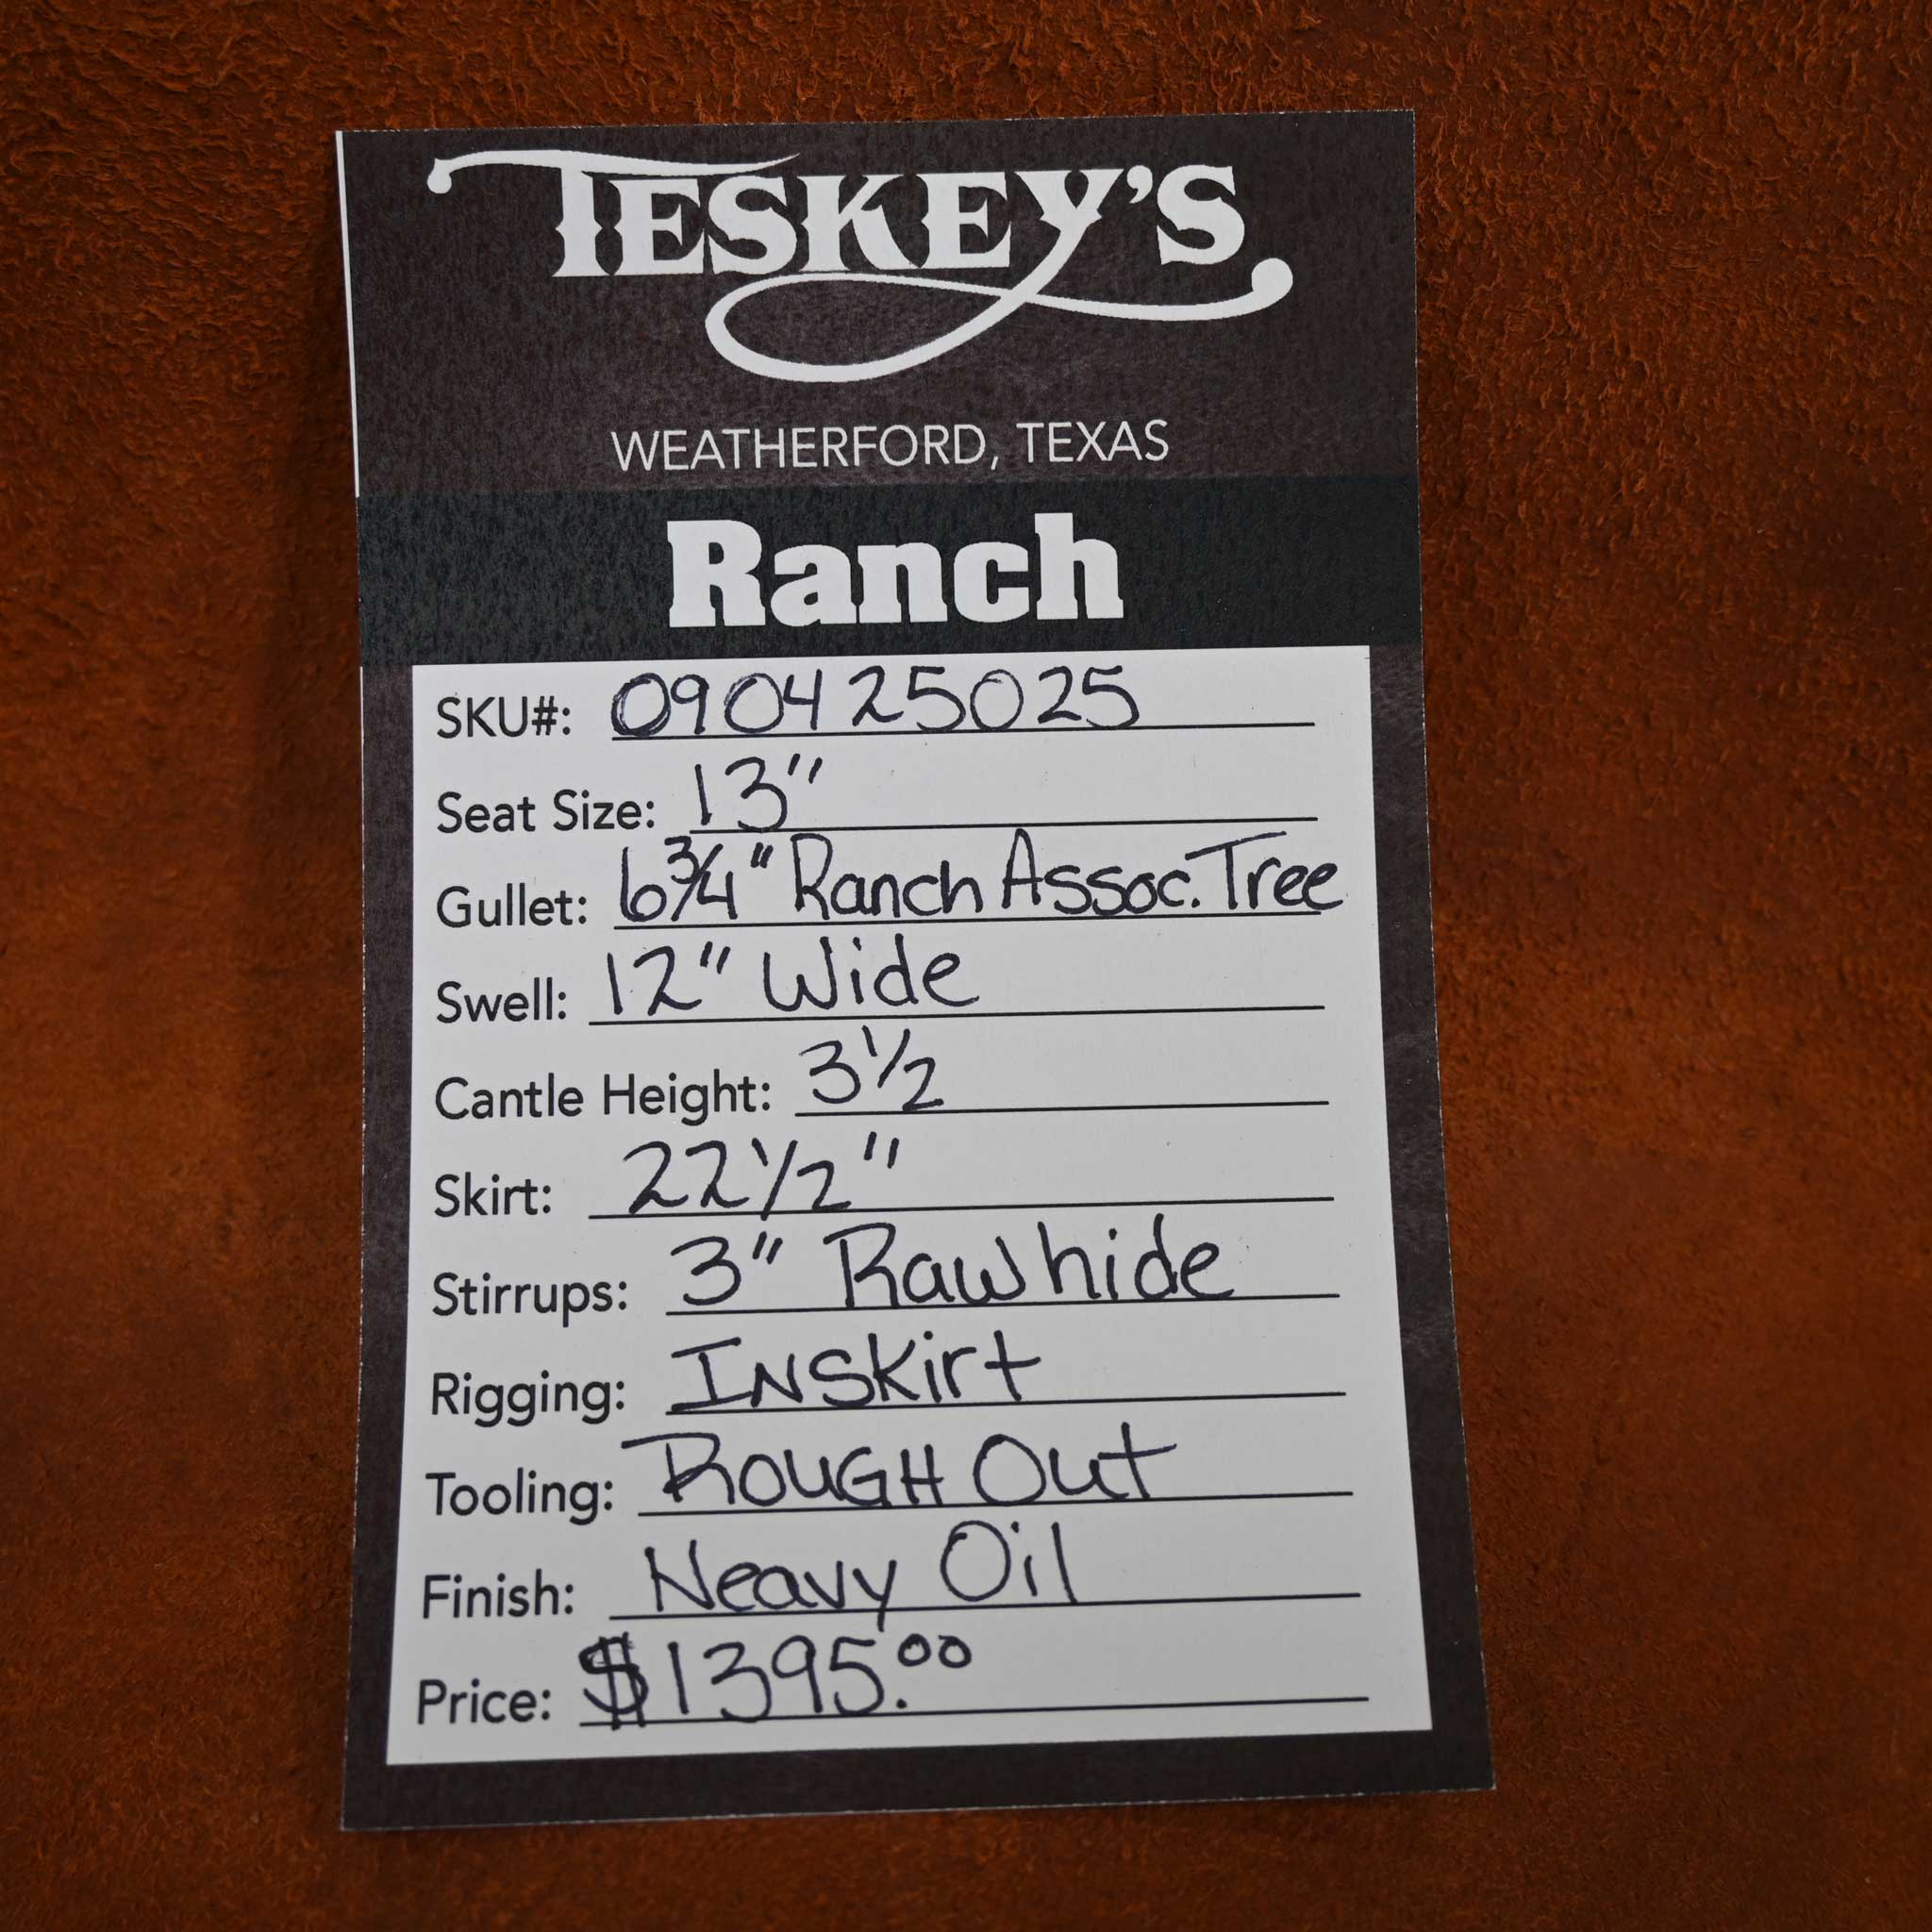 TESKEY'S
WEATHERFORD, TEXAS
Ranch
SKU#: 090425025
Seat Size: 13"
Gullet: 6 3/4" Ranch Assoc. Tree
Swell: 12" Wide
Cantle Height: 3 1/2
Skirt: 22 1/2"
Stirrups: 3" Rawhide
Rigging: INSKirt
Tooling: ROUGH Out
Finish: Heavy Oil
Price: $1395.00